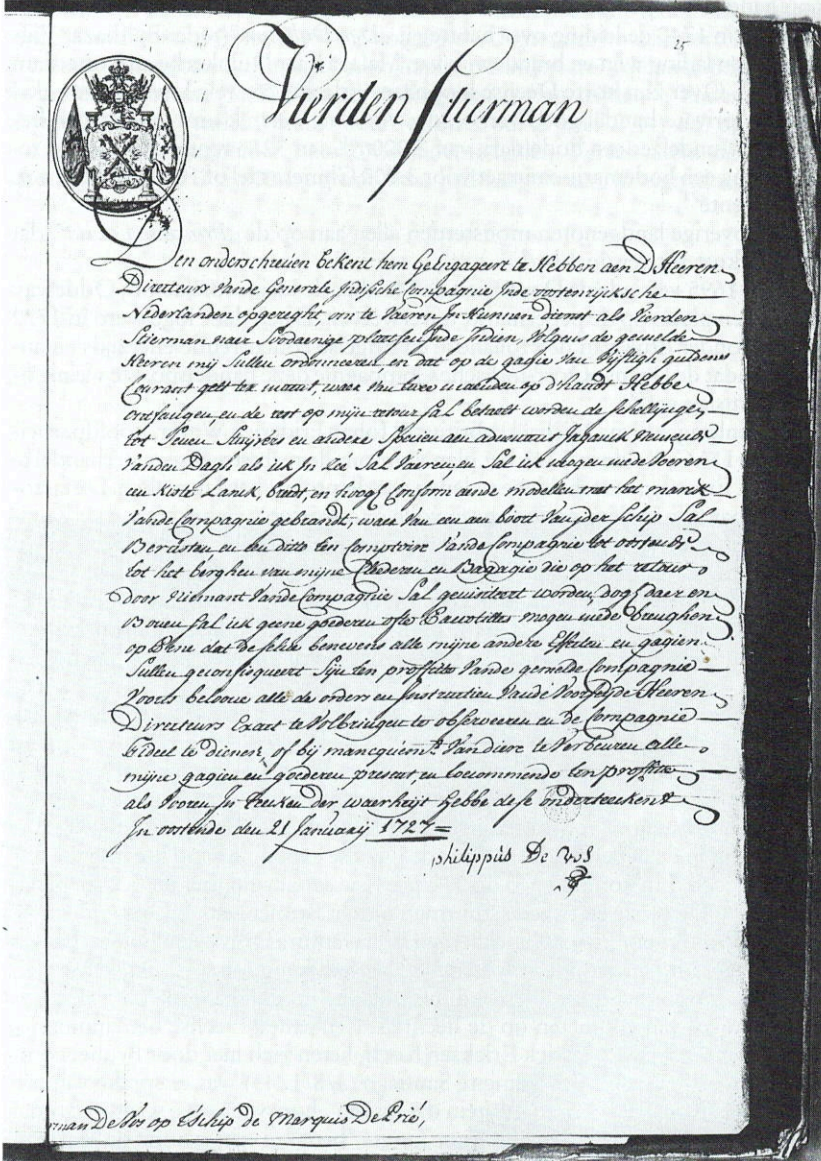 25
Vierden Stierman
Den onderschreven bekent hem GeEngageert te Hebben aen D'Heeren
Directeurs vande Generale Indische Compagnie Inde oostenrijcksche
Nederlanden opgereght, om te Vaeren In Hunnen dienst als Vierden
Stierman naer Soodaenige plaetsen Inde Indien, Volgens de gemelde
Heeren mij Sullen ordonneren en dat op de gagie van Vijftigh guldens
Courant gelt ter maent, waer van twee maenden op d'handt Hebbe
ontfangen en de rest op mijn retour Sal betaelt worden de schellingen
tot Seven Stuijvers en andere Specien aen advenant Inganck nemende
Vanden Dagh als ick In Zee Sal Vaeren en Sal ick mogen mede Voeren
een Kiste Lanck, breet, en hoogh Conform aende modellen met het marck
Vande Compagnie gebrandt, waer van een aen boort van jder schip Sal
Berusten en een ditto ten Comptoire Vande Compagnie tot ostende
tot het berghen van mijne Cleederen en Bagagie die op het retour
door niemant Vande Compagnie Sal gevisiteert worden, dogh daer en
Boven Sal ick geene goederen ofte Pacotillen mogen mede brenghen
op Pene dat de selve benevens alle mijne andere Effecten en gagien
Sullen geconfisqueert Sijn ten proffitte Vande gemelde Compagnie
Voorts beloove alle de orders en Instructien Vande Voorseyde Heeren
Directeurs Exact te Volbringen te observeeren en de Compagnie
fideel te dienen, of bij mancquement Van diere te Verbeuren alle
mijne gagien en goederen present en toecommende ten proffitte
als Vooren In teeken der waerheijt hebbe dese onderteekent
In oostende den 21 January 1727 =
philippus De vos
man De Vos op t'schip de Marquis De Prié,